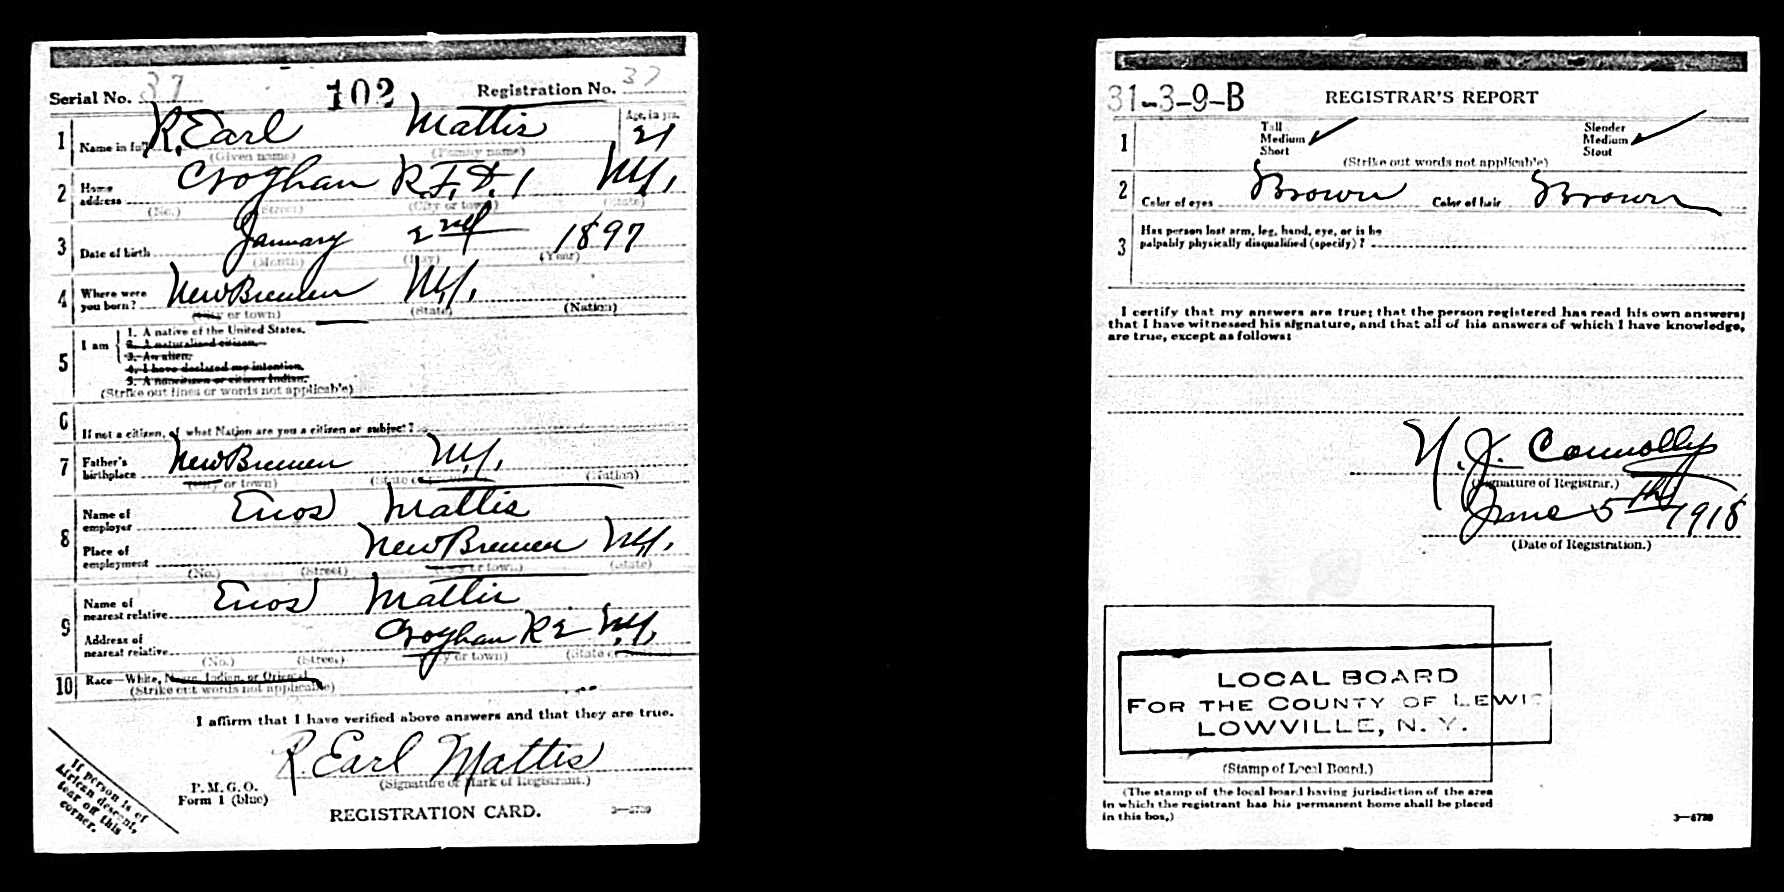 Serial No. 37 102 Registration No. 37
1 Name in full R. Earl Mattis Age, in yrs. 21
(Given name) (Family name)
2 Home address Croghan R.F.D. 1 N.Y.
(No.) (Street) (City or town) (State)
3 Date of birth January 2nd 1897
(Month) (Day) (Year)
4 Where were you born? New Bremen N.Y.
(City or town) (State) (Nation)
5 I am
1. A native of the United States.
2. A naturalized citizen.
3. An alien.
4. I have declared my intention.
5. A noncitizen or citizen Indian.
(Strike out lines or words not applicable)
6 If not a citizen, of what Nation are you a citizen or subject?
7 Father's birthplace New Bremen N.Y.
(City or town) (State or province) (Nation)
8 Name of employer Enos Mattis
Place of employment New Bremen N.Y.
(No.) (Street) (City or town) (State)
9 Name of nearest relative Enos Mattis
Address of nearest relative Croghan R 2 N.Y.
(No.) (Street) (City or town) (State or Nation)
10 Race—White, Negro, Indian, or Oriental
(Strike out words not applicable)
I affirm that I have verified above answers and that they are true.
R. Earl Mattis
(Signature or Mark of Registrant.)
P. M. G. O.
Form 1 (blue)
REGISTRATION CARD. 3—5729
If person is of
African descent,
tear off this
corner.
31-3-9-B REGISTRAR'S REPORT
1 Tall Slender
Medium Medium
Short Stout
(Strike out words not applicable)
2 Color of eyes Brown Color of hair Brown
3 Has person lost arm, leg, hand, eye, or is he
palpably physically disqualified (specify)?
I certify that my answers are true; that the person registered has read his own answers;
that I have witnessed his signature, and that all of his answers of which I have knowledge,
are true, except as follows:
N. J. Connolly
(Signature of Registrar.)
June 5th 1918
(Date of Registration.)
LOCAL BOARD
FOR THE COUNTY OF LEWIS
LOWVILLE, N. Y.
(Stamp of Local Board.)
(The stamp of the local board having jurisdiction of the area
in which the registrant has his permanent home shall be placed
in this box.)
3—5729